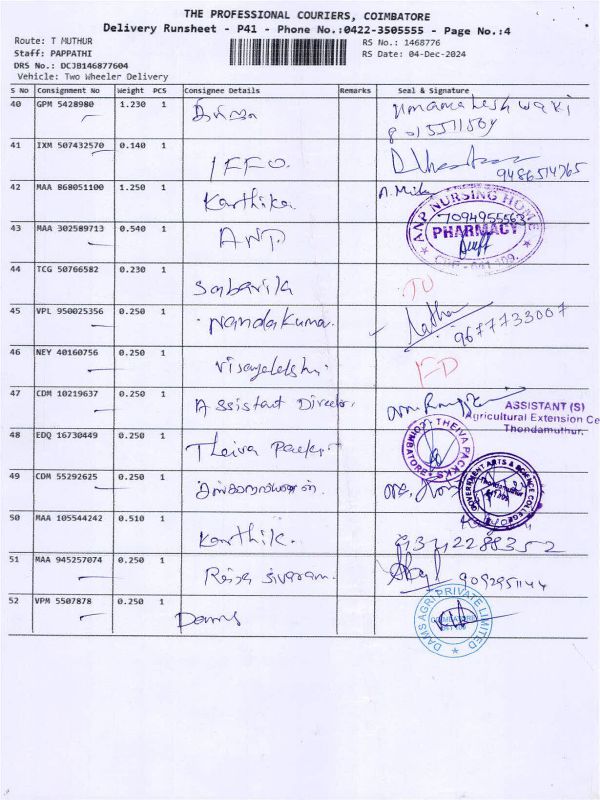 THE PROFESSIONAL COURIERS, COIMBATORE
Delivery Runsheet - P41 - Phone No.:0422-3505555 - Page No.:4
Route: T MUTHUR
RS No.: 1468776
Staff: PAPPATHI
RS Date: 04-Dec-2024
DRS No.: DCJB146877604
Vehicle: Two Wheeler Delivery
S No Consignment No Weight PCS Consignee Details Remarks Seal & Signature
40 GPM 5428980 1.230 1
41 IXM 507432570 0.140 1 IFFO. 9486514765
42 MAA 868051100 1.250 1 Karthika.
43 MAA 302589713 0.540 1 ANP ANP NURSING HOME 7094955563 PHARMACY
44 TCG 50766582 0.230 1 Sabarila
45 VPL 950025356 0.250 1 Nandakumar 9677733007
46 NEY 40160756 0.250 1
47 CDM 10219637 0.250 1 Assistant Director. ASSISTANT (S)
Agricultural Extension Ce
Thondamuthur.
48 EDQ 16730449 0.250 1 Theiva Packs THEIVA PACKKS COIMBATORE
49 CDM 55292625 0.250 1 GOVERNMENT ARTS & SCIENCE COLLEGE
50 MAA 105544242 0.510 1 Karthik. 9371228352
51 MAA 945257074 0.250 1 Roja Sivaram. 9092951144
52 VPM 5507878 0.250 1 Dams DAMS AGRI PRIVATE LIMITED